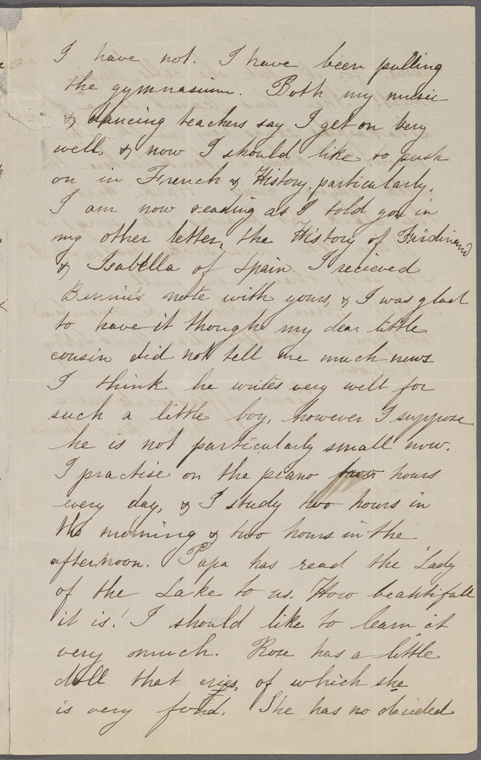 I have not. I have been pulling
the gymnasium. Both my music
& dancing teachers say I get on very
well, & now I should like to push
on in French & History, particularly.
I am now reading as I told you in
my other letter, the History of Ferdinand
& Isabella of Spain. I recieved
Bennie's note with yours, & I was glad
to have it though my dear little
cousin did not tell me much news
I think he writes very well for
such a little boy, however I suppose
he is not particularly small now.
I practise on the piano two hours
every day, & I study two hours in
the morning & two hours in the
afternoon. Papa has read the Lady
of the Lake to us. How beautifull
it is! I should like to learn it
very much. Rose has a little
doll that cries, of which she
is very fond. She has no decided